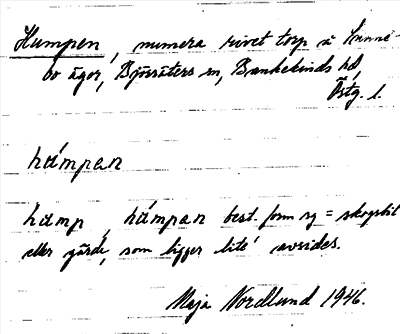 Humpen, numera rivet torp å Sunne-
bo ägor, Björsäters sn, Bankekinds hd,
Östg. l.
hu̇́mpen
hump, hu̇́mpen best. form sg = skogsbit
eller gärde, som ligger lite' avsides.
Maja Nordlund 1946.